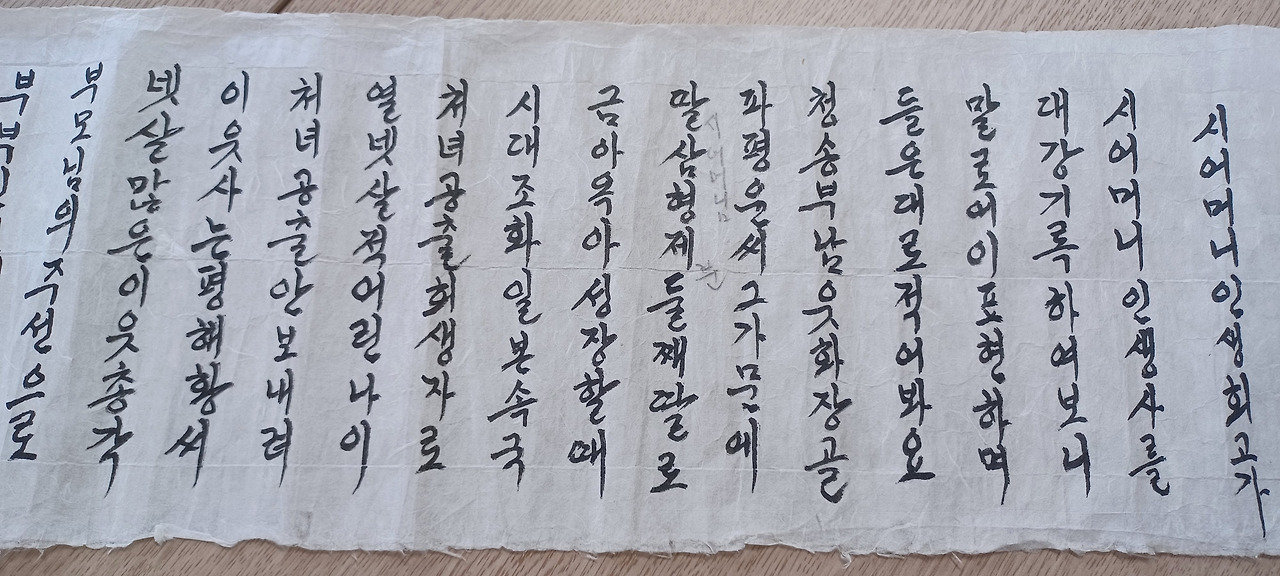 시어머니인생회고가
시어머니인생사를
대강기록하여보니
말로어이표현하며
들은대로적어봐요
청송부남웃화장골
파평윤씨그가문에
시어머님 분
말삼형제둘째딸로
금아옥아성장할때
시대조화일본속국
처녀공출희생자로
열넷살적어린나이
처녀공출안보내려
이웃사는평해황씨
넷살많은이웃총각
부모님의주선으로
부부